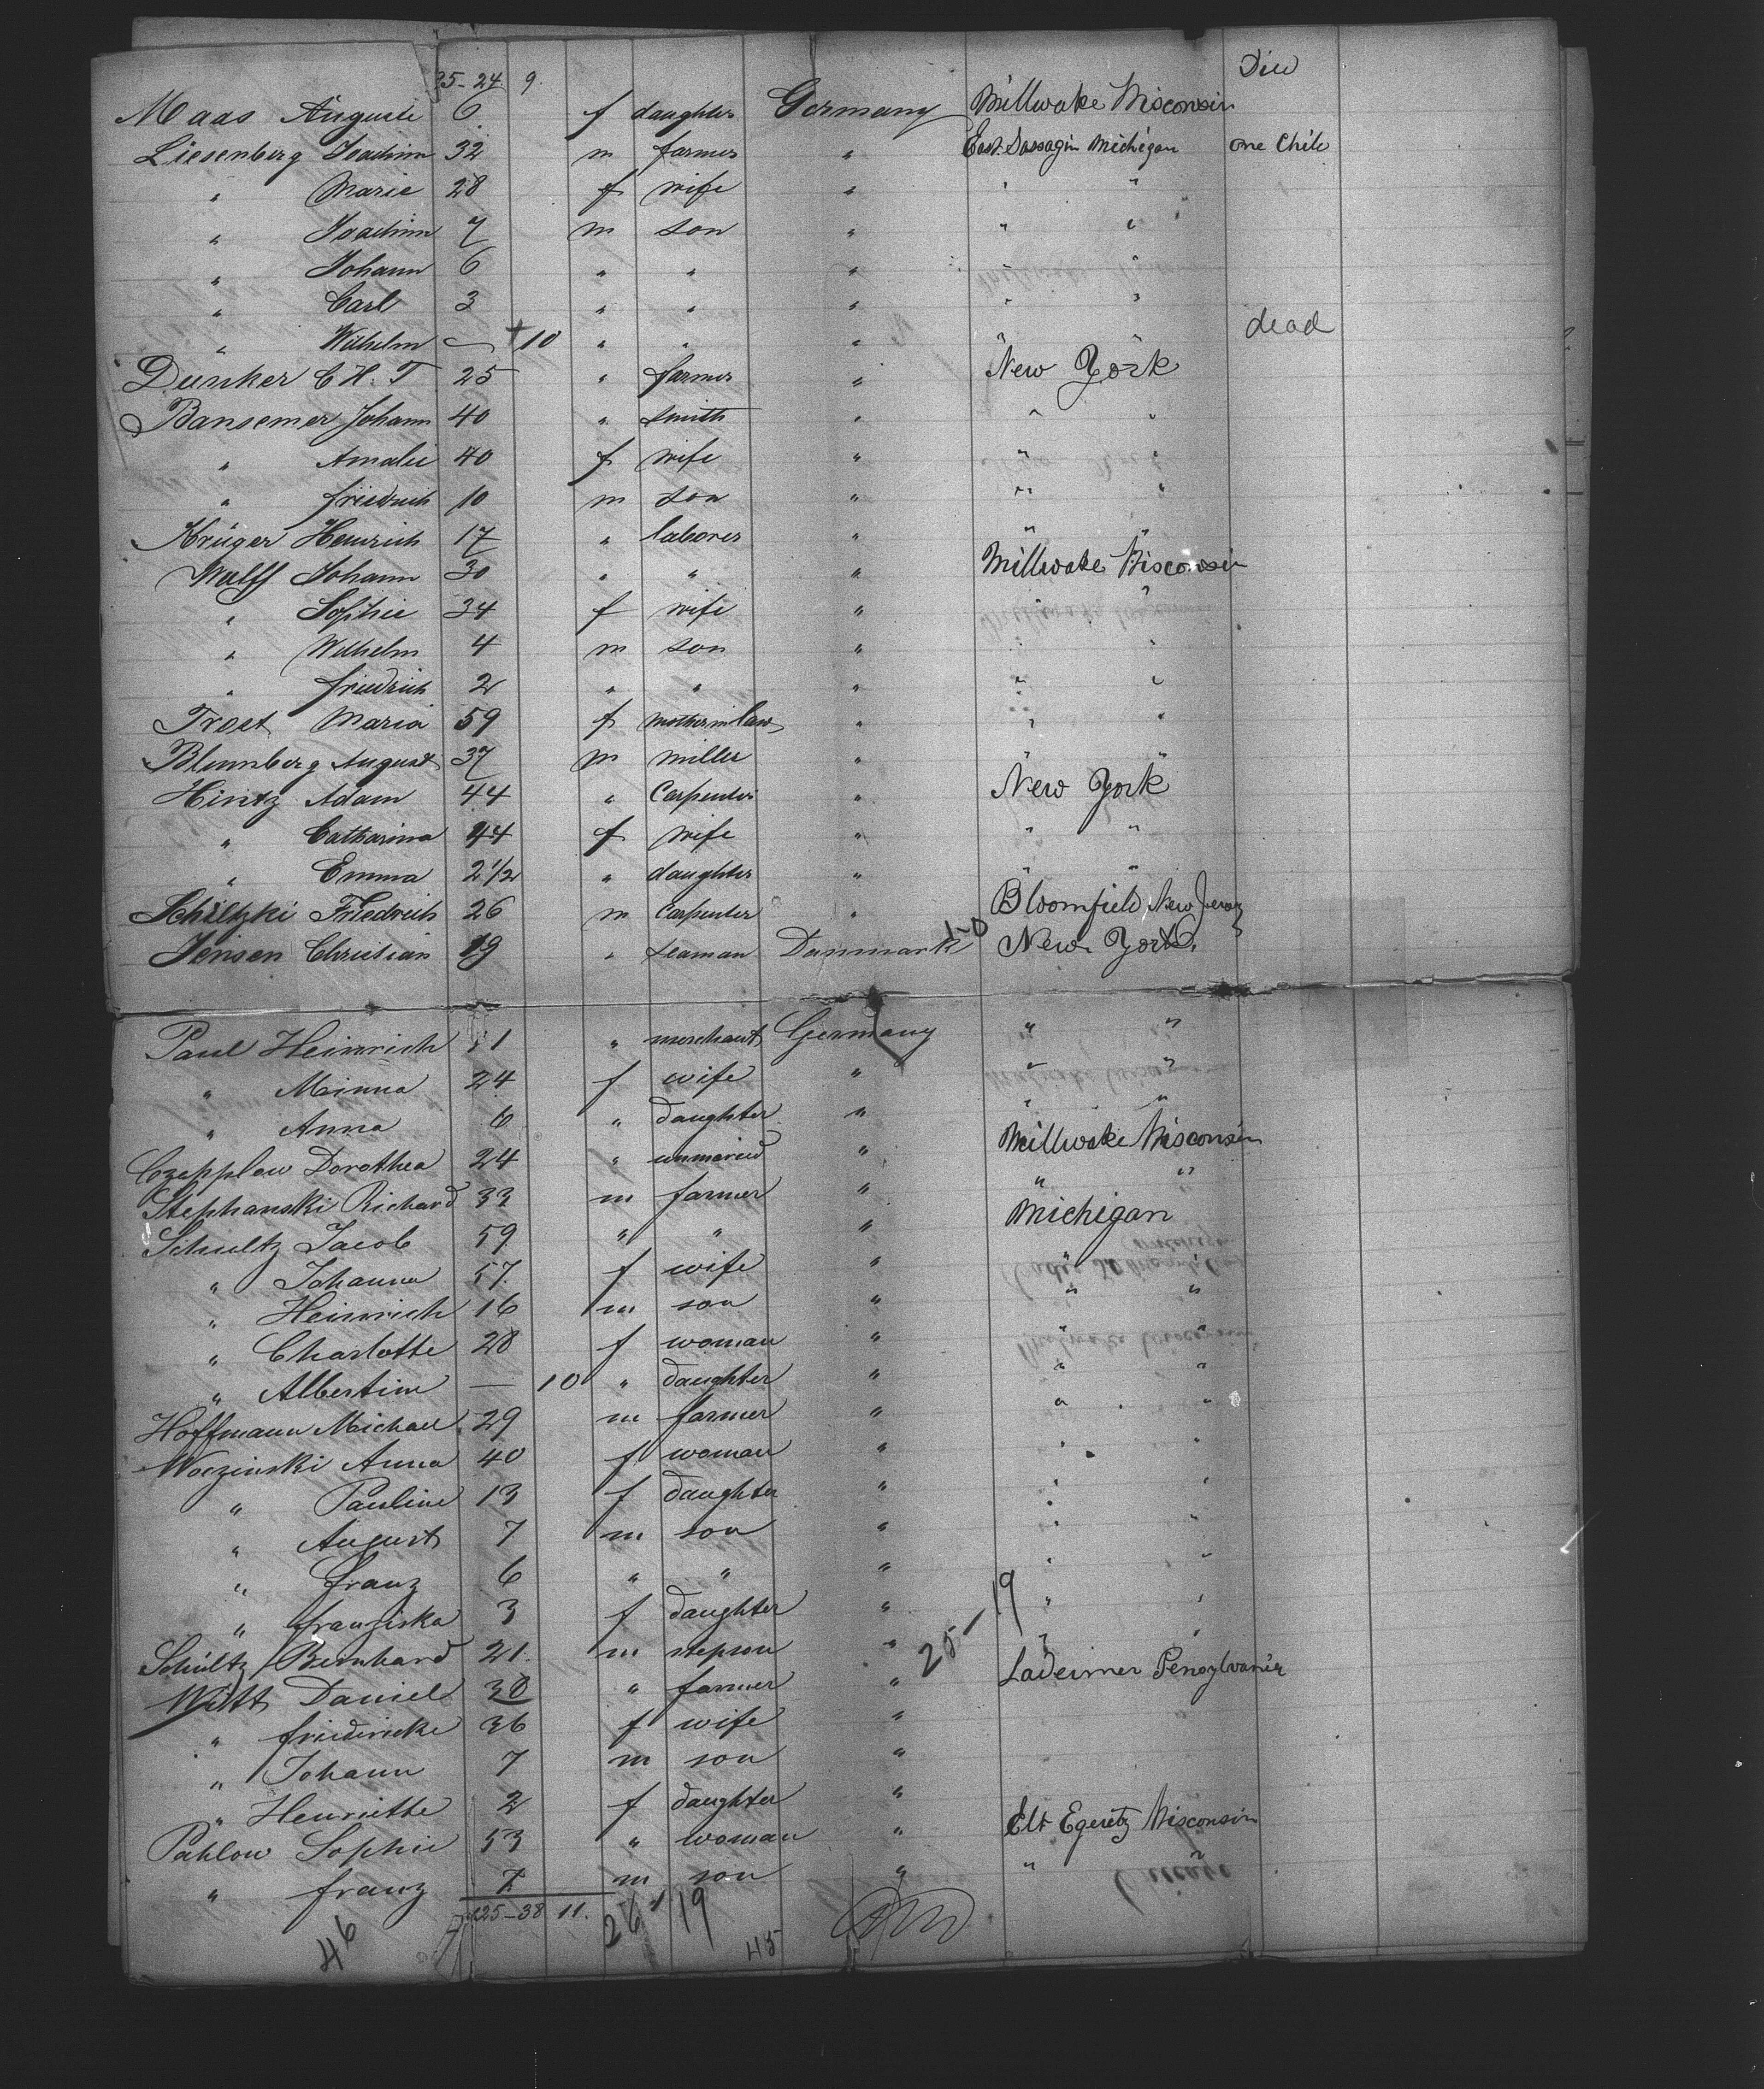 35-24 9. Died
Maas Auguste 6 f daughter Germany Millwake Wisconsin
Liesenberg Joachim 32 m farmer " East Sassagin Michigan one Child
" Marie 28 f wife " " "
" Joachim 7 m son " " "
" Johann 6 " " " " "
" Carl 3 " " " " "
" Wilhelm — + 10 " " " dead
Dunker C H. T 25 " farmer " New York
Bansemer Johann 40 " smith " " "
" Amalie 40 f wife " " "
" friedrich 10 m son " " "
Krüger Heinrich 17 " laborer " " "
Wulff Johann 30 " " " Millwake Wisconsin
" Sophie 34 f wife " " "
" Wilhelm 4 m son " " "
" friedrich 2 " " " " "
Trost Maria 59 f mother in law " " "
Blumberg August 37 m miller " " "
Hintz Adam 44 " Carpenter " New York
" Catharina 44 f wife " " "
" Emma 2 1/2 " daughter " " "
Schiltzki Friedrich 26 m Carpenter " Bloomfield New Jersey
Jensen Christian 19 " seaman Danmark 1-0 New York.
Paul Heinrich 51 " merchant Germany " "
" Minna 24 f wife " " "
" Anna 6 " daughter " " "
Czepplow Dorothea 24 " unmaried " Millwake Wisconsin
Stephanski Richard 33 m farmer " " "
Schultz Jacob 59 " " " Michigan
" Johanna 57 f wife " " "
" Heinrich 16 m son " " "
" Charlotte 28 f woman " " "
" Albertine — 10 " daughter " " "
Hoffmann Michael 29 m farmer " " "
Woezinski Anna 40 f woman " " "
" Pauline 13 f daughter " " "
" August 7 m son " " "
" franz 6 " " " " "
" franziska 3 f daughter " 25-19 " "
Schultz Bernhard 21 m stepson " " "
Witt Daniel 38 " farmer " Ladeimer Pensylvania
" friedericke 36 f wife "
" Johann 7 m son "
" Henriette 2 f daughter "
Pahlow Sophie 53 " woman " Elt Egeretz Wisconsin
" franz 7 m son " " "
125-38 11. 26 19
46 45